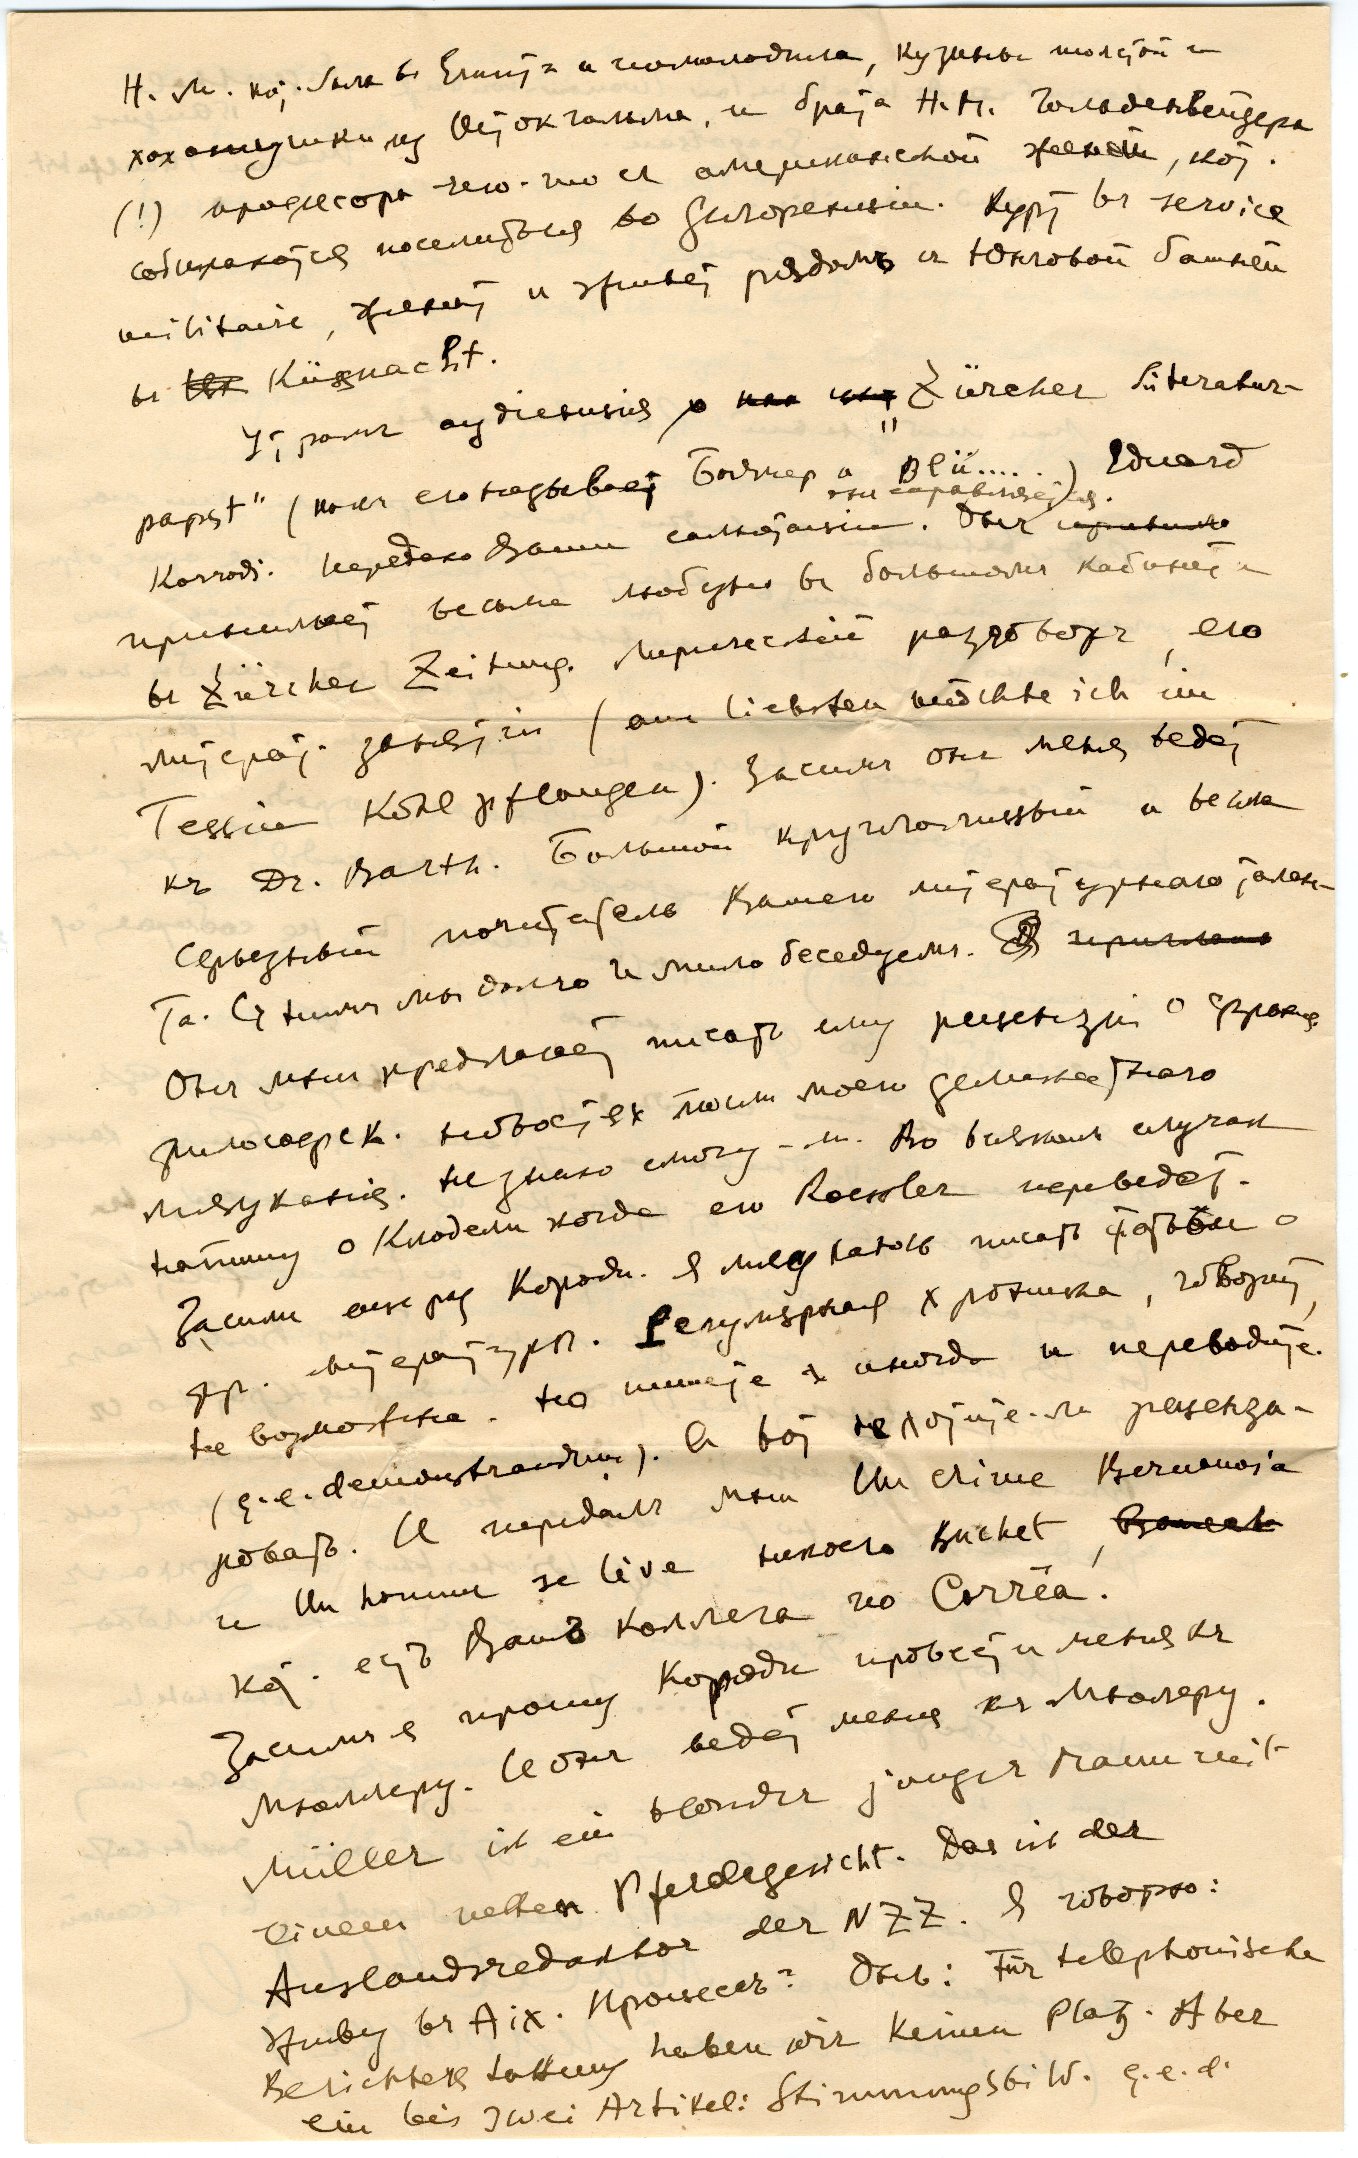 Н. М. кот. была въ Египтѣ и помолодѣла, кузины толстой и
хохотушки изъ Стокгольма, и брата Н. М. Гольденвейзера
(!) профессора чего-то съ американской женой, кот.
собираются поселиться во Флоренціи. Куртъ въ service
militaire, женатъ и живетъ рядомъ съ Юнговой башней
въ Küsnacht.
Утромъ аудіенція у „Zürcher Literatur-
papst" (какъ его называетъ Бодмеръ и Blü.....) Eduard
Korrodi. Передаю Вашу салютацію. Онъ
они справляются.
принимаетъ весьма любезно въ большомъ кабинетѣ
въ Zürcher Zeitung. Лирическій разговоръ, его
литерат. занятія (am liebsten möchte ich im
Tessin Kohl pflanzen). Засимъ онъ меня ведетъ
къ Dr. Barth. Большой круглолицый и весьма
серьезный почитатель Вашего литературнаго талан-
та. Съ нимъ мы долго и мило бесѣдуемъ.
Онъ мнѣ предлагаетъ писать ему рецензіи о франц.
философск. новостях послѣ моего деликатнаго
мяуканія. Не знаю смогу-ли. Во всякомъ случаѣ
напишу о Клоделѣ когда его Roessler переведетъ.
Засимъ еще разъ Короди. Я мяукаю писать статьи о
фр. литературѣ. Регулярная хроника, говоритъ,
не возможна. Но пишете иногда и переводите.
(q. e. demonstrandum). А вотъ не хотите-ли рецензи-
ровать. И передалъ мнѣ Un crime Bernanos'a
и Un homme se lève нѣкоего Buchet,
кот. есть Вашъ коллега по Corrêa!
Засимъ я прошу Короди провести меня къ
Мюллеру. И онъ ведетъ меня къ Мюллеру.
Müller ist ein blonder junger Mann mit
einem netten Pferdegesicht. Das ist der
Auslandsredaktor der NZZ. Я говорю:
Живу въ Aix. Процессъ? Онъ: Für telephonische
Berichterstattung haben wir keinen Platz. Aber
ein bis zwei Artikel: Stimmungsbild. q. e. d.